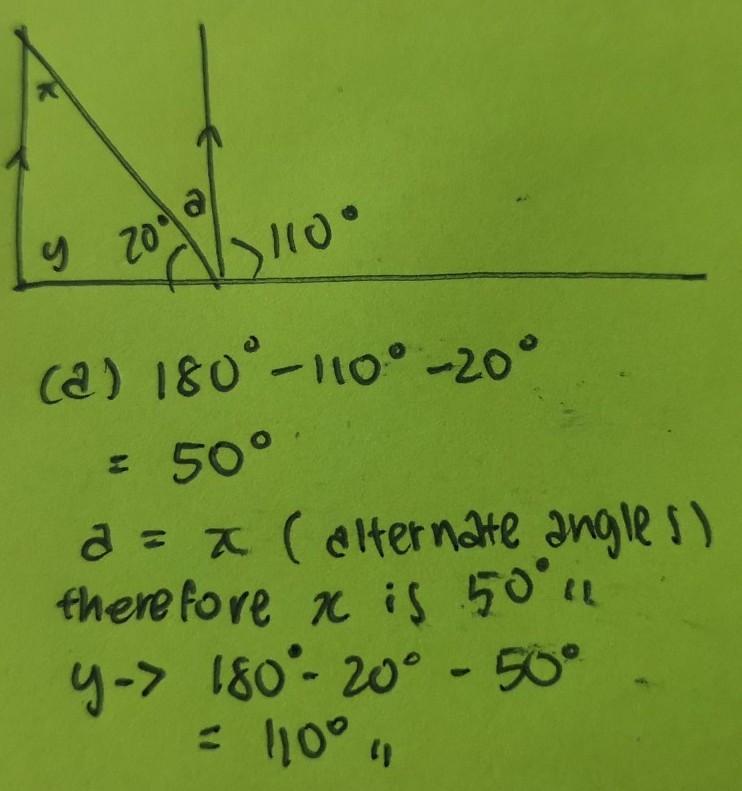 x
a
y 20° 110°
(a) 180° - 110° - 20°
= 50°
a = x (alternate angles)
therefore x is 50° "
y -> 180° - 20° - 50°
= 110° "